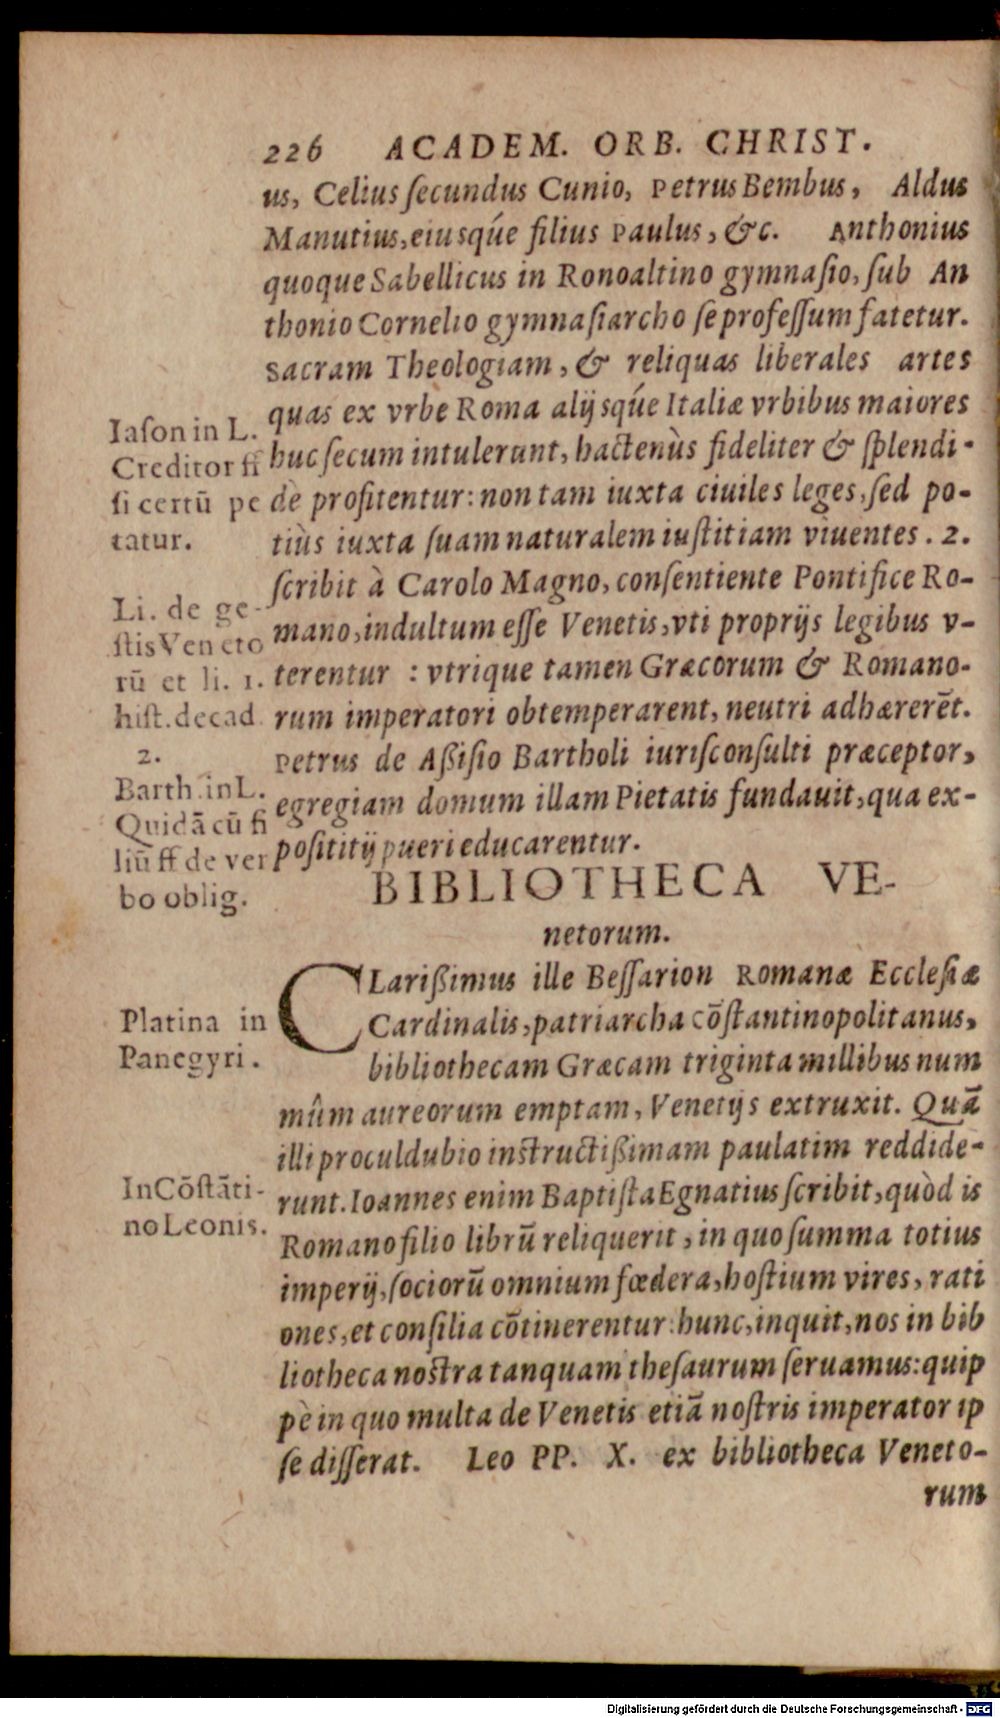 226 ACADEM. ORB. CHRIST.
us, Celius ſecundus Cunio, Petrus Bembus, Aldus
Manutius, eiusqúe filius Paulus, &c. Anthonius
quoque Sabellicus in Ronoaltino gymnaſio, ſub An
thonio Cornelio gymnaſiarcho ſe profeſſum fatetur.
Sacram Theologiam, & reliquas liberales artes
quas ex vrbe Roma alijsqúe Italiæ vrbibus maiores
huc ſecum intulerunt, hactenùs fideliter & ſplendi-
dè profitentur: non tam iuxta ciuiles leges, ſed po-
tiùs iuxta ſuam naturalem iuſtitiam viuentes. 2.
ſcribit à Carolo Magno, conſentiente Pontifice Ro-
mano, indultum eſſe Venetis, vti proprijs legibus v-
terentur : vtrique tamen Græcorum & Romano-
rum imperatori obtemperarent, neutri adhærerēt.
Petrus de Aßiſio Bartholi iuriſconſulti præceptor,
egregiam domum illam Pietatis fundauit, qua ex-
poſititij pueri educarentur.
Iaſon in L.
Creditor ff
ſi certū pe
tatur.
Li. de ge-
ſtis Veneto
rū et li. 1.
hiſt. decad
2.
Barth. in L.
Quidā cū fi
liū ff de ver
bo oblig.
BIBLIOTHECA VE-
netorum.
CLarißimus ille Beſſarion Romanæ Eccleſiæ
Cardinalis, patriarcha cōſtantinopolitanus,
bibliothecam Græcam triginta millibus num
mûm aureorum emptam, Venetijs extruxit. Quā
illi proculdubio inſtructißimam paulatim reddide-
runt. Ioannes enim Baptiſta Egnatius ſcribit, quòd is
Romano filio librū reliquerit, in quo ſumma totius
imperij, ſociorū omnium fœdera, hoſtium vires, rati
ones, et conſilia cōtinerentur: hunc, inquit, nos in bib
liotheca noſtra tanquam theſaurum ſeruamus: quip
pè in quo multa de Venetis etiā noſtris imperator ip
ſe diſſerat. Leo PP. X. ex bibliotheca Veneto-
rum
Platina in
Panegyri.
In Cōſtāti-
no Leonis.
Digitalisierung gefördert durch die Deutsche Forschungsgemeinschaft - DFG